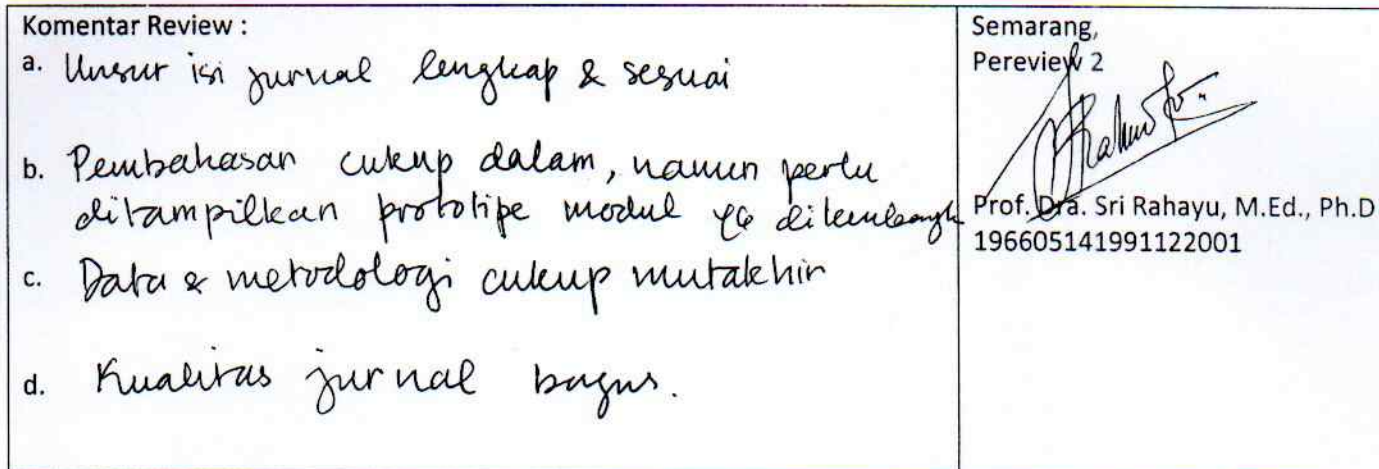 Komentar Review :
a. Unsur isi jurnal lengkap & sesuai
b. Pembahasan cukup dalam, namun perlu
ditampilkan prototipe modul yg dikembangk
c. Data & metodologi cukup mutakhir
d. Kualitas jurnal bagus.
Semarang,
Pereview 2
Prof. Dra. Sri Rahayu, M.Ed., Ph.D
196605141991122001